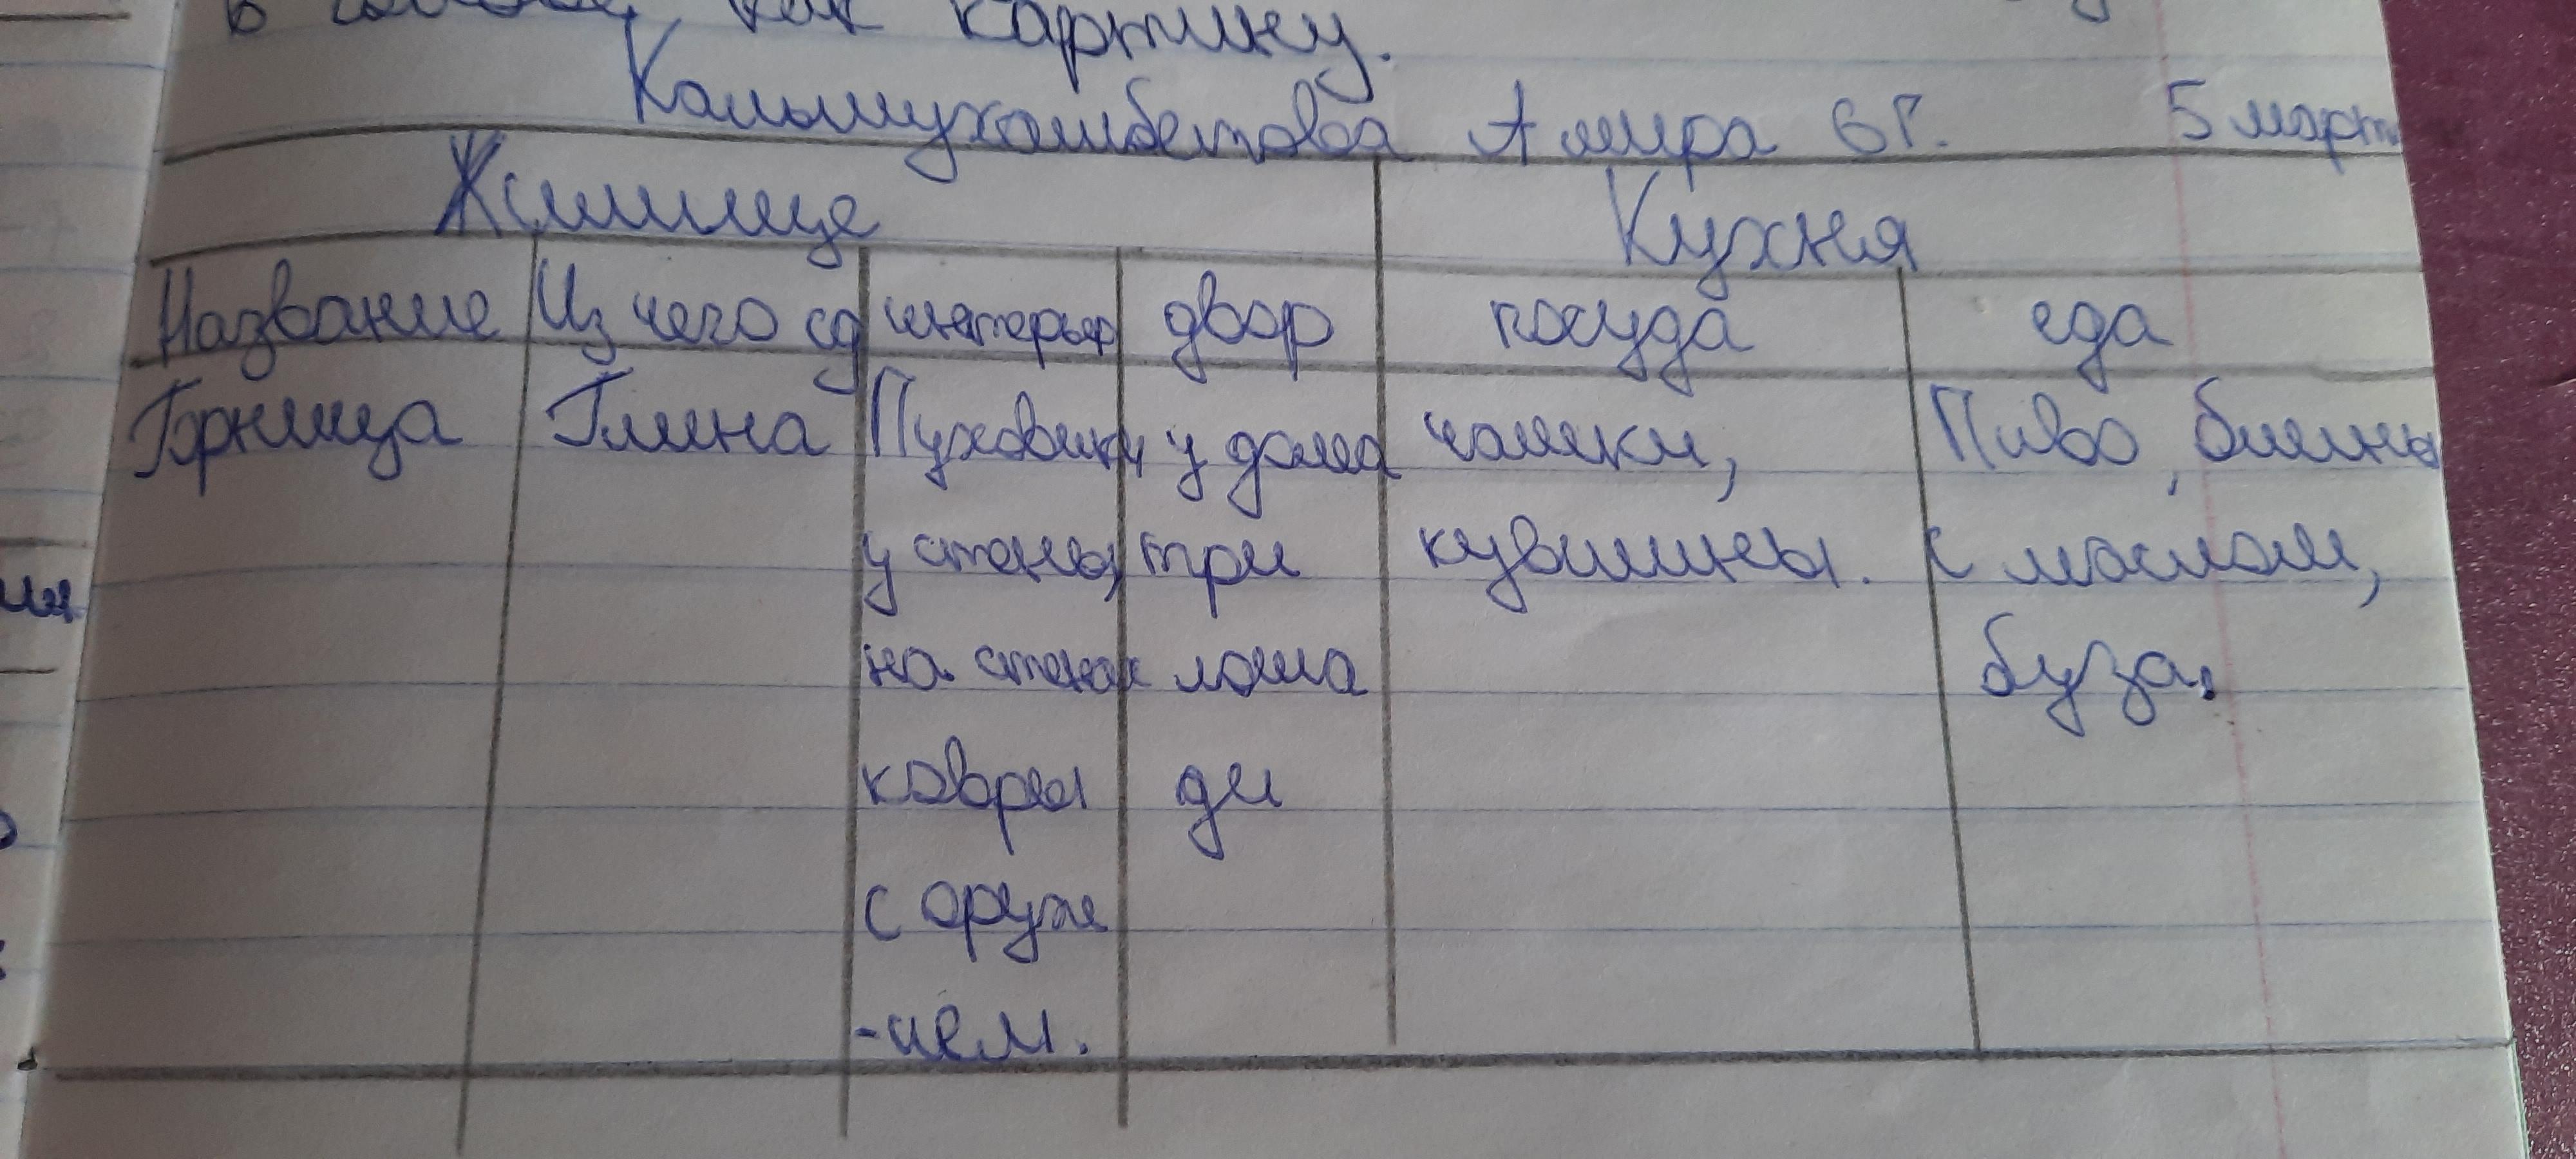 как картину.
Калымухамбетова Амира 6Г. 5 март
Жилище Кухня
Название Из чего сд интерьер двор посуда еда
Горница Глина Пуховики у дома чашки, Пиво, блины
у стены, три кувшины. с маслом,
на стенах лоша буза.
ковры ди
с оруж
-ием.